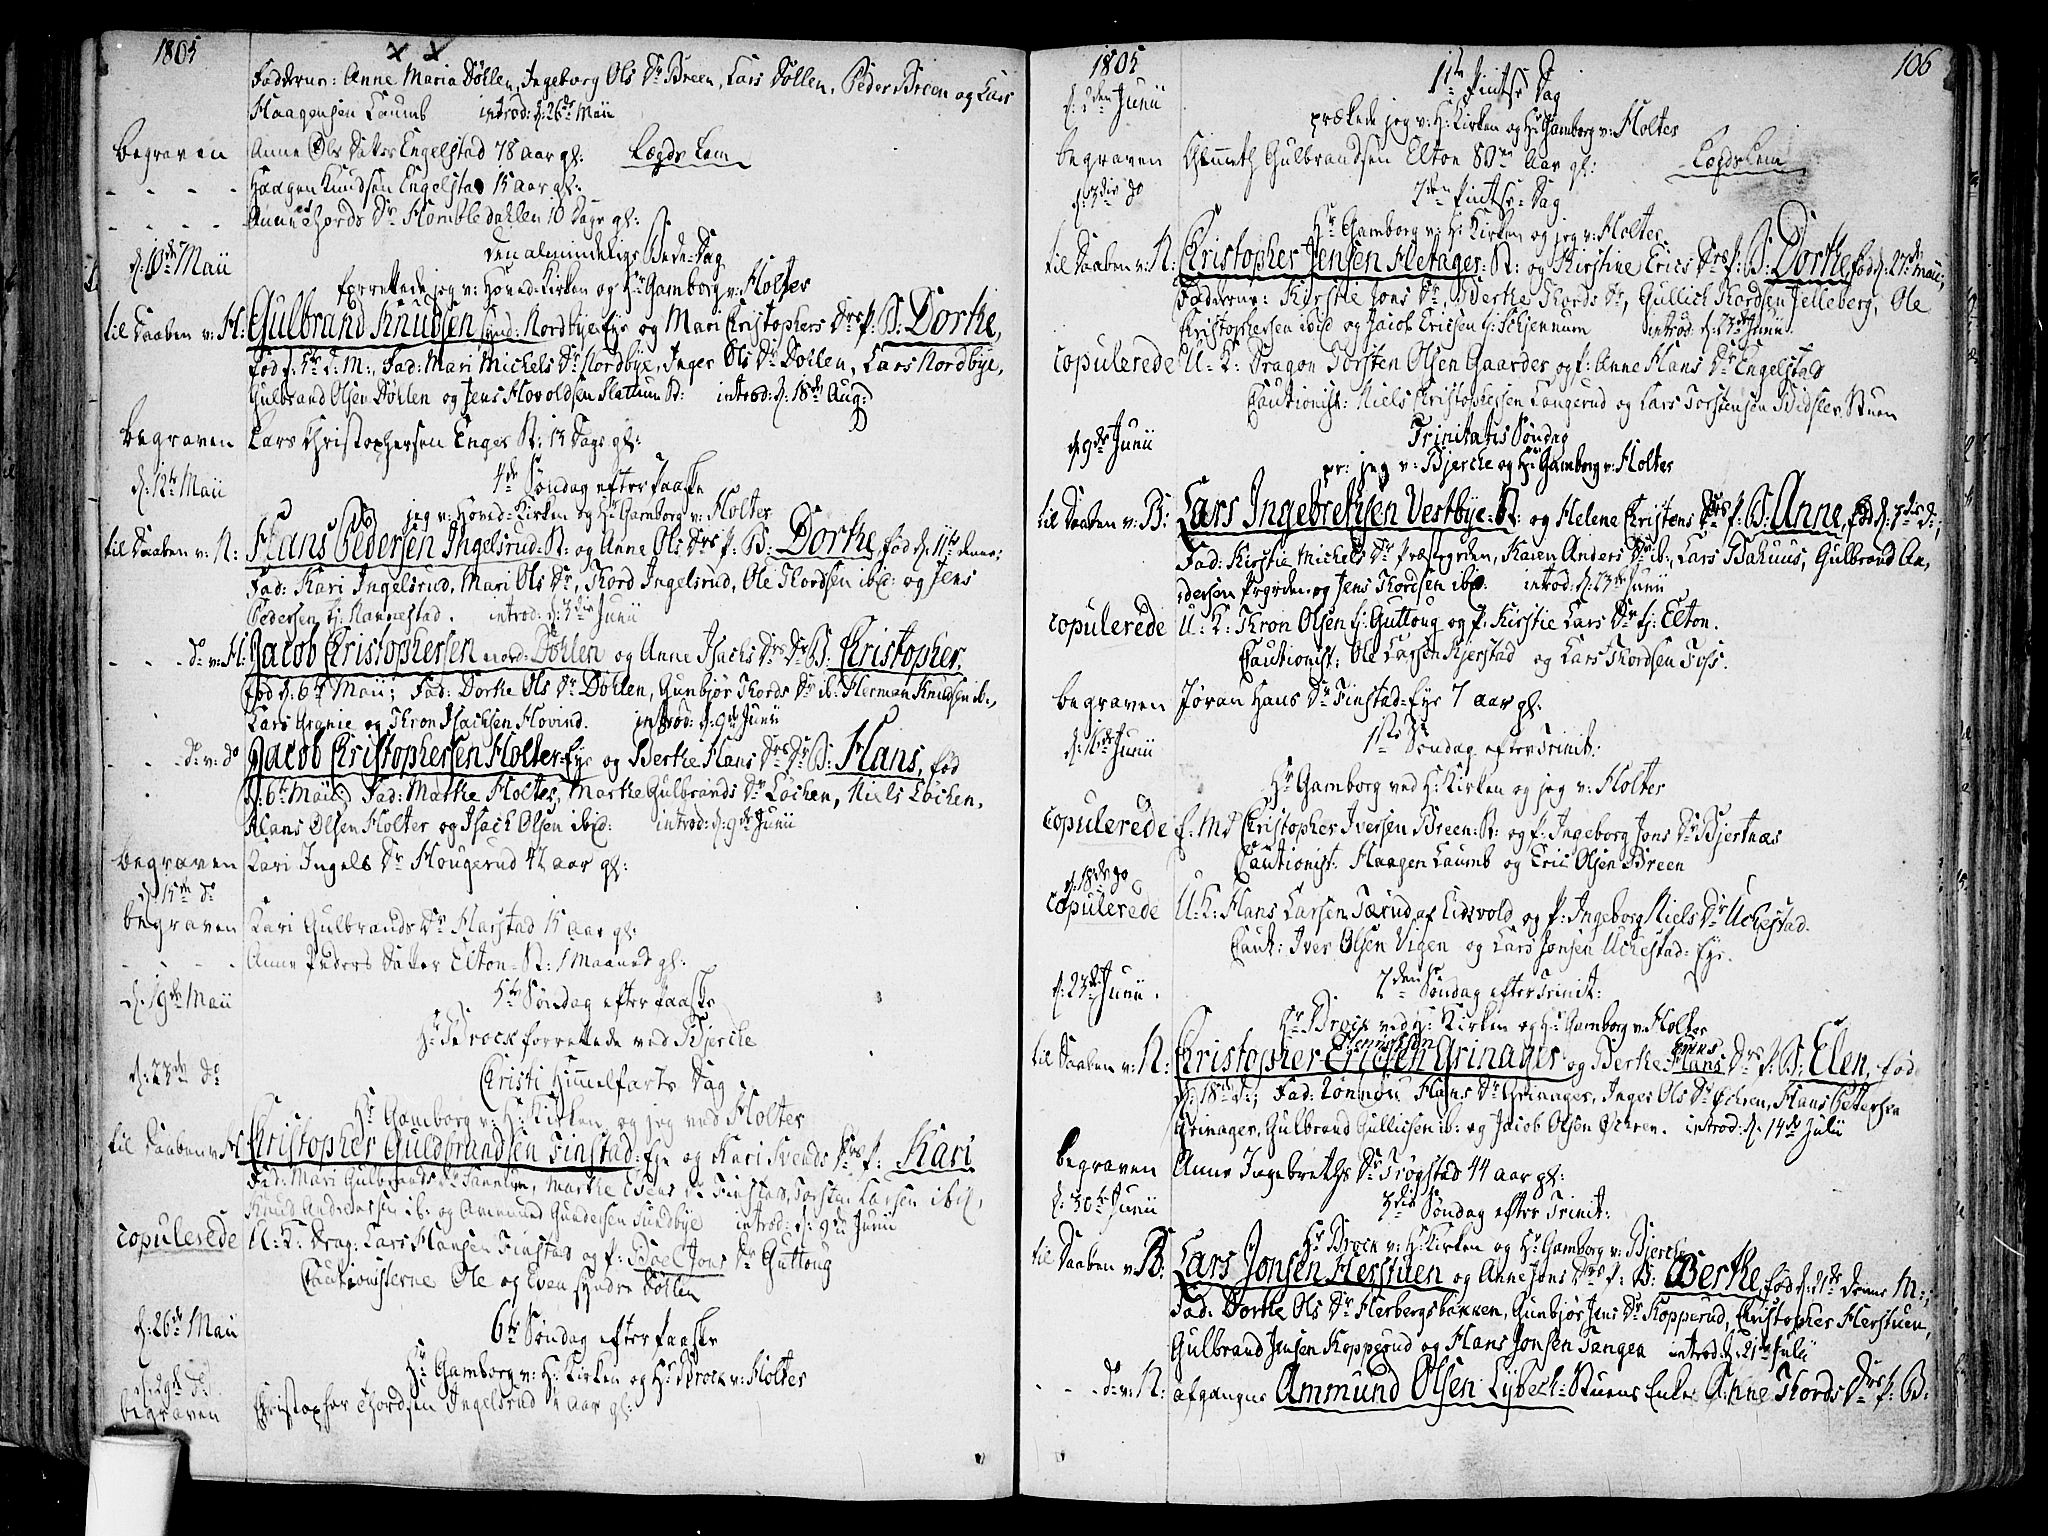 1805
Fadderne: Anne Maria Döllen, Ingeborg Ols Dr Breen, Lars Döllen, Peder Breen og Lars
Haagensen Laumb introd: d: 26de Maii
begraven Anne Ols Datter Engelstad 78 aar gl: Lægds Lem
- - - - Haagen Knudsen Engelstad 15 aar gl:
- - - - Anne Thords Dr Homble dahlen 10 Dage gl:
d: 10de Maii Den almindelige Bede-Dag
forrettede jeg v: Hoved-Kirken og Hr Gamborg v: Holter
til Daaben v: H: Gulbrand Knudsen Nordbye Eye og Mari Christophers Drs P: B: Dorthe,
fød d: 5te d: M:, Fad: Mari Michels Dr Nordbye, Inger Ols Dr Döllen, Lars Nordbye,
Gulbrand Olsen Döhlen og Jens Hovoldsen Slattum St: introd: d: 18de Aug:
begraven Lars Christophersen Enger St: 13 Dage gl:
d: 12te Maii 4de Søndag efter Paaske
jeg v: Hoved-Kirken og Hr Gamborg v: Holter
til Daaben v: N: Hans Pedersen Ingelsrud-St: og Anne Ols Drs P: B: Dorthe, fød d: 11te
Fad: Kari Ingelsrud, Mari Ols Dr, Thord Ingelsrud, Ole Thordsen ibid: og Jens
Pedersen hj: Nannestad. introd: d: 3die Junii
- - - do v: H: Jacob Christophersen nord-Döhlen og Anne Isachs Drs Do B: Christopher,
fød d: 6te Maii; Fad: Dorthe Ols Dr Döhlen, Gunbjør Thords Dr ib: Herman Knudsen ib:,
Lars Granie og Thron Isachsen Hovind. introd: d: 9de Junii
- - - do v: do Jacob Christophersen Holter-Eye og Berthe Hans Drs Do B: Hans, fød
d: 6te Maii Fad: Marthe Holter, Marthe Gulbrands Dr Løchen, Niels Løchen,
Hans Olsen Holter og Isach Olsen ibid: introd: d: 9de Junii
begraven Kari Ingels Dr Hougerud 42 aar gl:
d: 15de do
begraven Kari Gulbrands Dr Harstad 15 aar gl:
- - - - Anne Peders Datter Elton-St: 1 Maaned gl:
d: 19de Maii 5te Søndag efter Paaske
Hr Brock forrettede ved Bjerche
d: 23de do Christi Himmelfarts Dag
Hr Gamborg v: H: Kirken og jeg ved Holter
til Daaben v: H: Christopher Guldbrandsen Finstad-Eye og Kari Svends Drs P: Kari
Fad: Mari Gulbrands Dr, Marthe Dr Finstad, Torsten Larsen ibid,
Knud Andersen ib: og Ammund Gundersen Sundbye introd: d: 9de Junii
copulerede U: K: Drag: Lars Hansen Finstad og P: Boel Jons Dr Guttoug
Cautionisterne Ole og Even søndre Döllen
d: 26de Maii 6te Søndag efter Paaske
Hr Gamborg v: H: Kirken og Hr Brock v: Holter
d: 29de do
begraven Christopher Thordsen Ingelsrud aar gl:
1805 106
d: 2den Junii 1ste Pintse Dag
prækede jeg v: H: Kirken og Hr Gamborg v: Holter
begraven Gulbrandsen Elton 80 Aar gl: Lægds Lem
d: 3die do 2den Pintse-Dag
Hr Gamborg v: H: Kirken og jeg v: Holter
til Daaben v: N: Christopher Jensen Fletager-St: og Kirstine Erics Drs P: B: Dorthe fød d: 27de Maii,
Fadderne: Kirstie Jons Dr, Berthe Thords Dr, Gullich Thordsen Jelleberg, Ole
Christophersen ibid og Jacob Ericsen hj: Schjennum introd: d: Junii
copulerede U: K: Dragon Torsten Olsen Gaarder og P: Anne Hans Dr Engelstad
Cautionist: Niels Christophersen Langerud og Lars Torstensen Bidslev Stuen
d: 9de Junii Trinitatis Søndag
pr: jeg v: Bjerche og Hr Gamborg v: Holter
til Daaben v: B: Lars Ingebrethsen Vestbye-St: og Helene Christens Drs P: B: Anne, fød d: 7de d:,
Fad: Kirstie Michels Dr Præstgrden, Karen Anders Dr ib:, Lars Bahuus, Gulbrand An,
dersen Prgrden, og Jens Thordsen ibid. introd: d: 23de Junii
copulerede U: K: Thron Olsen hj: Guttoug og P: Kirstie Lars Dr hj: Elton.
Cautionist: Ole Larsen Kjerstad og Lars Thordsen Toss.
begraven Jøran Hans Dr Finstad-Eye 7 aar gl:
d: 16de Junii 1ste Søndag efter Trinit:
Hr Gamborg ved H: Kirken og jeg v: Holter
copulerede Christopher Iversen Breen-St: og P: Ingeborg Jons Dr Bjertnæs
Cautionist: Haagen Laumb og Eric Olsen Breen
d: 18de do
copulerede U: K: Hans Larsen Tærud af Eidsvold og P: Ingeborg Niels Dr Uchestad.
Caut: Iver Olsen Vigen og Lars Jonsen Uchestad-Eye.
d: 23de Junii. 2den Søndag efter Trinit:
Hr Brock ved H: Kirken og Hr Gamborg v: Holter
til Daaben v: N: Christopher Ericsen Grinager og Berthe Hans Drs P: B: Elen, fød
d: 18de d:; Fad: Hans Dr Grinager, Inger Ols Dr Øchren, Hans Pettersen
Grinager, Gulbrand Gullicsen ib: og Jacob Olsen Øchren. introd: d: 14de Julii
begraven Anne Ingebreths Dr Trøgstad 44 aar gl:
d: 30te Junii 3die Søndag efter Trinit:
Hr Brock v: H: Kirken og Hr Gamborg v: Bjerche
til Daaben v: B: Lars Jonsen Herstuen og Anne Jons Drs P: B: Berthe, fød d: 21de denne M:;
Fad: Dorthe Ols Dr Herbergsbakken, Gunbjør Jens Dr Kopperud, Christopher Herstuen,
Gulbrand Jensen Kopperud og Hans Jonsen Tangen introd: d: 21de Julii
- - - do v: N: afgangne Ammund Olsen Lybech-Stuens Enke Anne Thords Drs P: B: